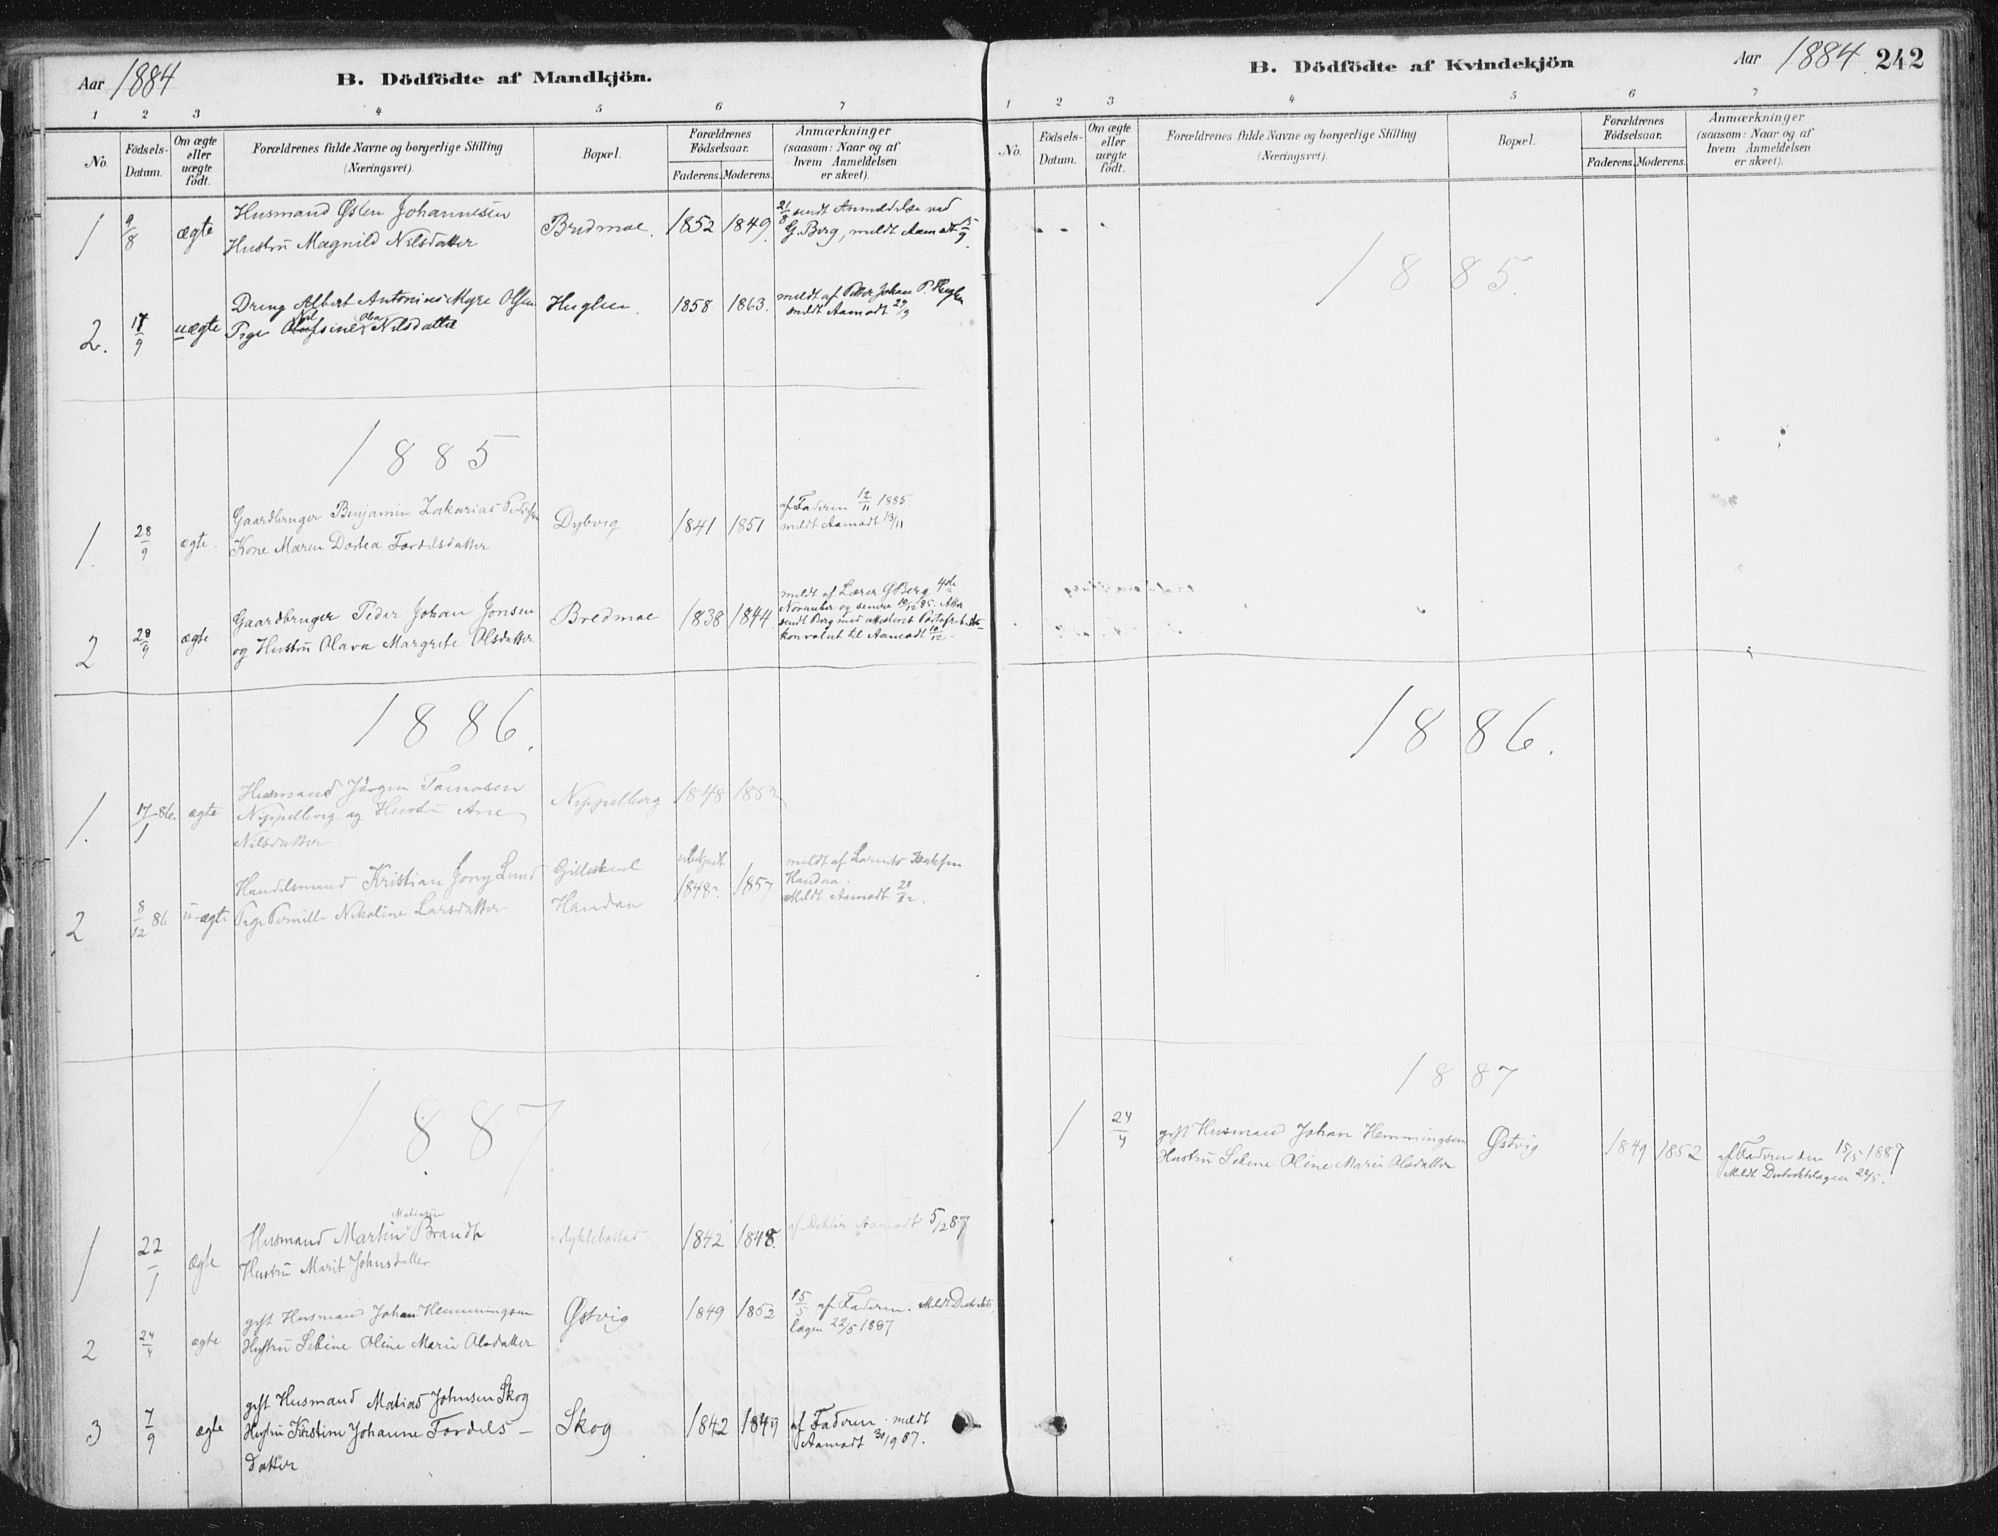 Aar 1884
B. Dödfödte af Mandkjön.
1 2 3 4 5 6 7
No.
Födsels-Datum.
Om ægte eller uægte födt.
Forældrenes fulde Navne og borgerlige Stilling
(Næringsvei).
Bopæl.
Forældrenes Födselsaar.
Faderens. Moderens.
Anmærkninger
(saasom: Naar og af
hvem Anmeldelsen
er skeet).
1 9/8 ægte
Husmand Østen Johannesen
Hustru Magnild Nilsdatter
Bredmoe. 1852 1849.
21/8 sendt Anmeldelse ved
G. Berg, meldt Aamodt 15/9.
2. 17/9 uægte
Dreng Albert Antonius Myre Olsen
Pige Nilsdatter
Huglen 1858 1863.
meldt af Petter Johan P. Huglen
meldt Aamodt 29/9
1885
1. 28/9 ægte.
Gaardbruger Benjamin Zakarias Pedersen
Kone Maren Dortea Fordelsdatter
Dybvig 1841 1851
af Faderen 12/11 1885.
meldt Aamodt 13/11
2 28/9 ægte
Gaardbruger Peder Johan Jonsen
og Hustru Olava Margrete Olsdatter
Bredmoe 1838 1844.
meldt af Lærer G Berg 4de
November og senere 10/12 85.
sendt Berg med
konvolut til Aamodt 10/12.
1886.
1. 17/1 86. ægte
Husmand Jörgen Tomasen
Nyppelborg og Hustru Ane
Nilsdatter
Nyppelborg 1848 1852
2 8/12 86 u-ægte
Handelsmand Kristian Jony Lund
Pige Pernille Nikoline Larsdatter
Gilleskaal
Handaa
1848? 1857
meldt af Larents
Handaa.
Meldt Aamodt
1887
1 22/1 ægte
Matiasen
Husmand Martin Brandt
Hustru Marit Johnsdatter
1842 1848.
af Doktor Aamodt 5/2 87
2 24/4 ægte
gift Husmand Johan Hemmingsen
Hustru Sebine Oline Marie Olsdatter
Østvig 1849 1852
15/5 af Faderen. Meldt Distrikts
lægen 22/5 1887
3 7/9 ægte
gift Husmand Matias Johnsen Skog
Hustru Kirstine Johanne Fordels-
datter
Skog 1842 1849
af Faderen. meldt
Aamodt 30/9 87.
B. Dödfödte af Kvindekjön
Aar 1884. 242
1 2 3 4 5 6 7
No.
Födsels-Datum.
Om ægte eller uægte födt.
Forældrenes fulde Navne og borgerlige Stilling
(Næringsvei).
Bopæl.
Forældrenes Födselsaar.
Faderens. Moderens.
Anmærkninger
(saasom: Naar og af
hvem Anmeldelsen
er skeet).
1885.
1886.
1887
1 24/4
gift Husmand Johan Hemmingsen
Hustru Sebine Oline Marie Olsdatter
Østvig 1849 1852
af Faderen den 15/5 1887
Meldt Distriktslægen 22/5.